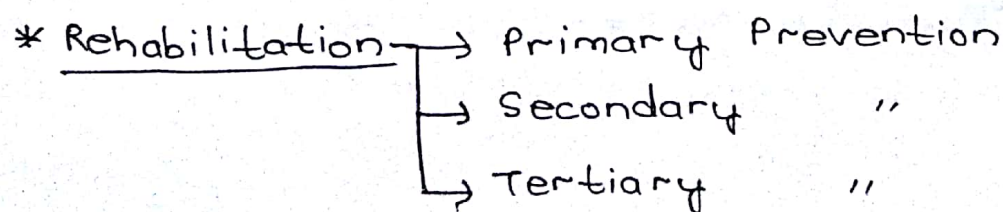 * Rehabilitation → Primary Prevention
→ Secondary "
→ Tertiary "